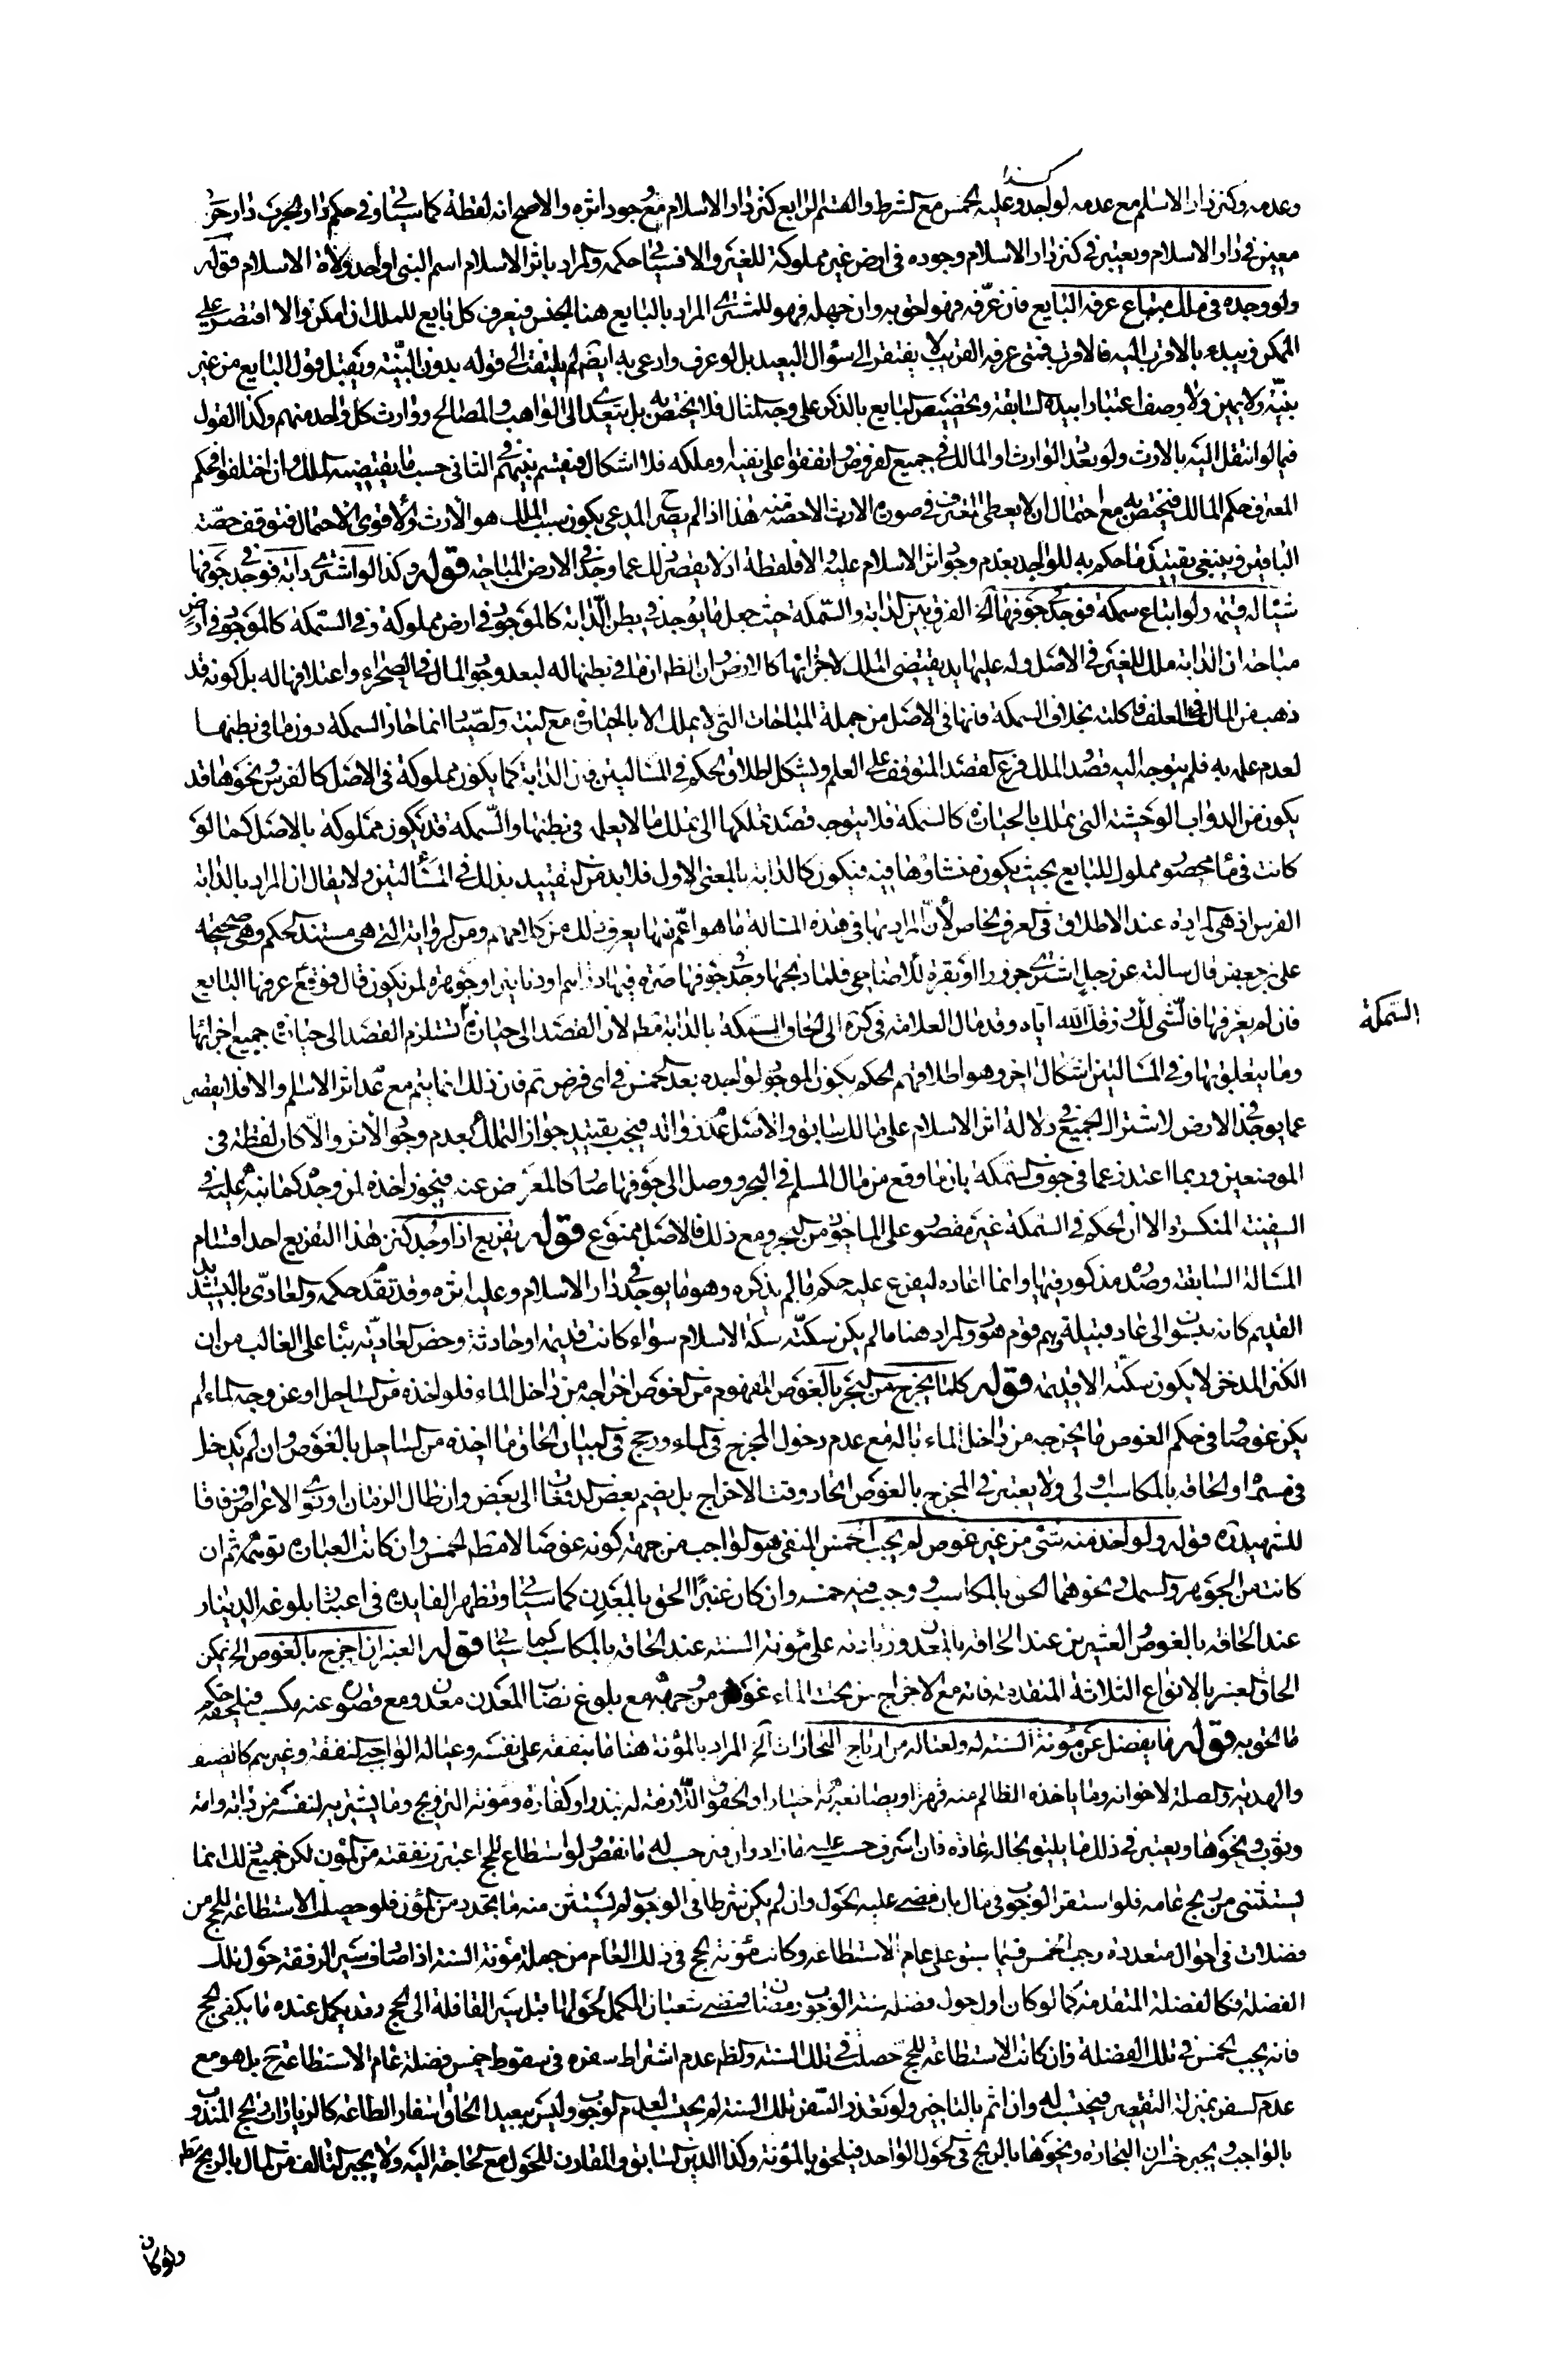 كذا
وعدمه وكنز دار الاسلام مع عدمه لواجده وعليه الخمس مع الشرط والقسم الرابع كنز دار الاسلام مع وجود اثره والاصح انه لقطة كما سيأتي وفي حكم دار الحرب دار حربي
معين في دار الاسلام ويعتبر في كنز دار الاسلام وجوده في ارض غير مملوكة للغير والا فسيأتي حكمه والمراد باثر الاسلام اسم النبي او أحد ولاة الاسلام قوله
ولو وجده في ملك مبتاع عرفه البايع فان عرفه فهو احق به وان جهله فهو للمشتري المراد بالبايع هنا الجنس فيعرف كل بايع للملك ان امكن والا اقتصر على
الممكن فيبدء بالاقرب اليه فالاقرب فمتى عرفه القريب لا يفتقر الى سؤال البعيد بل لو عرف وادعى به ايضا لم يلتفت الى قوله بدون البينة ويقبل قول البايع من غير
بينة ولا يمين ولا وصف اعتبارا بيده السابقة وتخصيص البايع بالذكر على وجه المثال فلا يختص به بل يتعدى الى الواهب والمصالح ووارث كل واحد منهم وكذا القول
فيما لو انتقل اليه بالارث ولو تعدد الوارث او المالك في جميع الفروض واتفقوا على نفيه او ملكه فلا اشكال فيقسم بينهم في الثاني حسب ما يقتضيه الملك وان اختلفوا فحكم
المعترف حكم المالك فيختص به مع احتمال ان لا يعطى المعترف في صورة الارث الا حصته منه هذا اذا لم يصرح المدعي بكون سبب الملك هو الارث والا قوي الاحتمال فتوقف حصة
الباقين فينبغي تقييد ما حكم به للواجد بعدم وجود اثر الاسلام عليه والا فلقطة اذ لا يقصر ذلك عما وجد في الارض المباحة قوله وكذا لو اشترى دابة فوجد في جوفها
شيئا له قيمة ولو ابتاع سمكة فوجد في جوفها الخ الفرق بين الدابة والسمكة حيث جعل ما يوجد في بطن الدابة كالموجود في ارض مملوكة وفي السمكة كالموجود في ارض
مباحة ان الدابة ملك للغير في الاصل وله عليها يد يقتضي الملك لاجزائها كالارض وان الظاهر ان ما في بطنها له لبعد وجود المال في الصحراء واعتلافها له بل كونه قد
ذهب من المالك في العلف فاكلته بخلاف السمكة فانها في الاصل من جملة المباحات التي لا يملك الا بالحيازة مع النية والصياد انما حاز السمكة دون ما في بطنها
لعدم علمه به فلم يتوجه اليه قصد الملك فرع القصد المتوقف على العلم ويشكل اطلاق الحكم في المسالتين فان الدابة كما يكون مملوكة في الاصل كالفرس ونحوها قد
يكون من الدواب الوحشية التي تملك بالحيازة كالسمكة فلا يتوجه قصد تملكها الى تملك ما لا يعلم في بطنها والسمكة قد تكون مملوكة بالاصل كما لو
كانت في ماء محصور مملوك للبايع بحيث يكون منشاؤها فيه فيكون كالدابة بالمعنى الاول فلا بد من التقييد بذلك في المسألتين ولا يقال ان المراد بالدابة
الفرس اذ هي المرادة عند الاطلاق في العرف الخاص لأن المراد بها في هذه المسالة ما هو اعم منها يعرف ذلك من كلامهم ومن الرواية التي هي مستند الحكم وهي صحيحة
علي بن جعفر قال سالته عن رجل اشترى جزورا او بقرة للاضاحي فلما ذبحها وجد في جوفها صرة فيها دراهم او دنانير او جوهرة لمن يكون قال فوقع ع عرفها البايع
فان لم يعرفها فالشى لك رزقك الله اياه وقد مال العلامة في كرة الى الحاق السمكة بالدابة مطلقا لان القصد الى حيازة تستلزم القصد الى حيازة جميع اجزائها
السمكة
وما يتعلق بها وفي المسالتين اشكال اخر وهو اطلاقهم الحكم بكون الموجود لواجده بعد الخمس في اي فرض تم فان ذلك انما يتم مع عدم اثر الاسلام والا فلا يقصر
عما يوجد في الارض لاشتراك الجميع في دلالة اثر الاسلام على مالك سابق والاصل عدم زواله فيجب تقييد جواز التملك بعدم وجود الاثر والا كان لقطة في
الموضعين وربما اعتذر عما في جوف السمكة بان ما وقع من مال المسلم في البحر ووصل الى جوفها صار كالمعرض عنه فيجوز اخذه لمن وجده كما نبه عليه في
السفينة المنكسرة الا ان الحكم في السمكة غير مقصور على الماخوذ من البحر ومع ذلك فالاصل ممنوع قوله تفريع اذا وجد كنز هذا التفريع احد اقسام
المسالة السابقة وصدره مذكور فيها وانما اعاده ليفرع عليه حكم ما لم يذكره وهو ما يوجد في دار الاسلام وعليه اثره وقد تقدم حكمه والعادي بالتشديد
القديم كانه منسوب الى عاد قبيلة وهم قوم هود والمراد هنا ما لم يكن سكته سكة الاسلام سواء كانت قديمة او حادثة وخص العادية بناء على الغالب من ان
الكنز المدخر لا يكون سكته الا قديمة قوله كلما يخرج من البحر بالغوص المفهوم من الغوص اخراجه من داخل الماء فلو اخذه من الساحل او عن وجه الماء لم
يكن غوصا وفي حكم الغوص ما يخرجه من داخل الماء بآلة مع عدم دخول المخرج في الماء ورجح في البيان الحاق ما اخذه من الساحل بالغوص وان لم يدخل
في مسماه والحاقه بالمكاسب اولى ولا يعتبر في المخرج بالغوص اتحاد وقت الاخراج بل يضم بعض الدفعات الى بعض وان طال الزمان او نوى الاعراض وفاقا
للشهيد ره قوله ولو اخذ منه شئ من غير غوص لم يجب الخمس المنفي هو الواجب من جهة كونه غوصا لا مطلق الخمس وان كانت العبارة توهمه ثم ان
كانت من الجوهر والسمك ونحوهما الحق بالمكاسب ووجب فيه خمسه وان كان عنبرا الحق بالمعدن كما سيأتي وتظهر الفايدة في اعتبار بلوغه الدينار
عند الحاقه بالغوص والعشرين عند الحاقه بالمعدن وزيادته على مؤنة السنة عند الحاقه بالمكاسب كما سيأتي قوله العنبر ان اخرج بالغوص الخ يمكن
الحاق العنبر بالانواع الثلاثة المتقدمة فانه مع الاخراج من تحت الماء غوص ومن وجهه مع بلوغ نصاب المعدن معدن ومع قصوره عنه مكسب فيلحقه حكم
ما الحق به قوله ما يفضل عن مؤنة السنة له ولعياله من ارباح التجارات الخ المراد بالمؤنة هنا ما ينفقه على نفسه وعياله الواجبي النفقة وغيرهم كالضيف
والهدية والصلة لاخوانه وما ياخذه الظالم منه قهرا او يصانعه به اختيارا والحقوق اللازمة له بنذر او كفارة ومؤنة التزويج وما يشتريه لنفسه من دابة وامة
وثوب ونحوها ويعتبر في ذلك ما يليق بحاله عادة فان اسرف حسب عليه ما زاد وان قتر حسب له ما نقص ولو استطاع للحج اعتبرت نفقته من المؤن لكن جميع ذلك انما
يستثنى من ربح عامه فلو استقر الوجوب في مال بان مضى عليه الحول وان لم يكن شرطا في الوجوب لم يستثن منه ما تجدد من المؤن فلو حصلت الاستطاعة للحج من
فضلات في احوال متعددة وجب الخمس فيما سبق على عام الاستطاعة وكانت مؤنة الحج في ذلك العام من جملة مؤنة السنة اذا صادف سير الرفقة حول تلك
الفضلة فكالفضلة المتقدمة كما لو كان اول حول فضلة سنة الوجوب رمضان ومضى شعبان المكمل لحولها قبل سير القافلة الى الحج وقد يكمل عنده ما يكفي الحج
فانه يجب الخمس في تلك الفضلة وان كانت الاستطاعة للحج حصلت في تلك السنة والظاهر عدم اشتراط سفره في سقوط خمس فضلة عام الاستطاعة ح بل هو مع
عدم السفر بمنزلة التقصير فيحتسب له وان اثم بالتاخير ولو تعذر السفر تلك السنة لم يحتسب لعدم الوجوب وليس ببعيد الحاق اسفار الطاعة كالزيارات والحج المندوب
بالواجب ويجبر خسران التجارة ونحوها بالربح في الحول الواحد فيلحق بالمؤنة وكذا الدين السابق والمقارن للحول مع الحاجة اليه ولا يجبر التالف من المال بالربح مطلقا
ولو كان